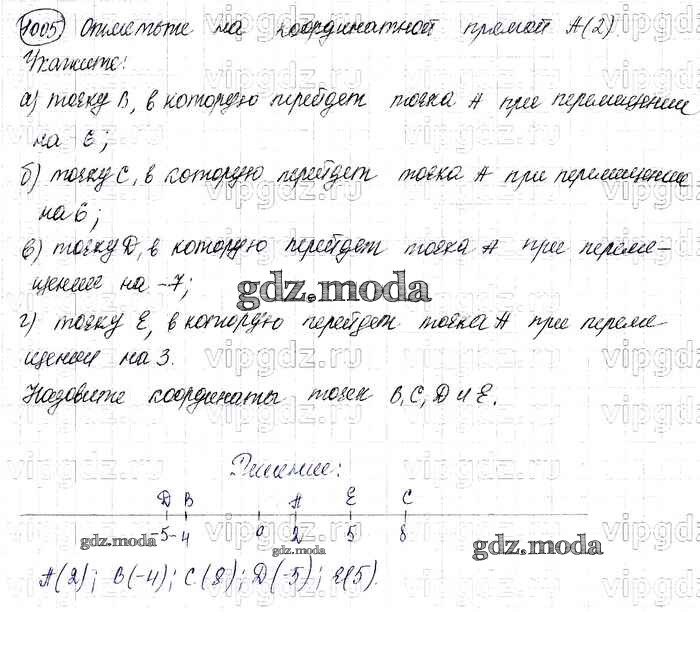 1005 Отметьте на координатной прямой А(2)
Укажите:
а) точку В, в которую перейдет точка А при перемещении
на Е;
б) точку С, в которую перейдет точка А при перемещении
на 6;
в) точку D, в которую перейдет точка А при переме-
щении на -7;
г) точку Е, в которую перейдет точка А при переме-
щении на 3.
Назовите координаты точек В, С, D и Е.
gdz.moda
Решение:
D B A E C
-5 -4 0 2 5 8
gdz.moda gdz.moda gdz.moda
А(2); В(-4); С(8); D(-5); Е(5).
vipgdz.ru